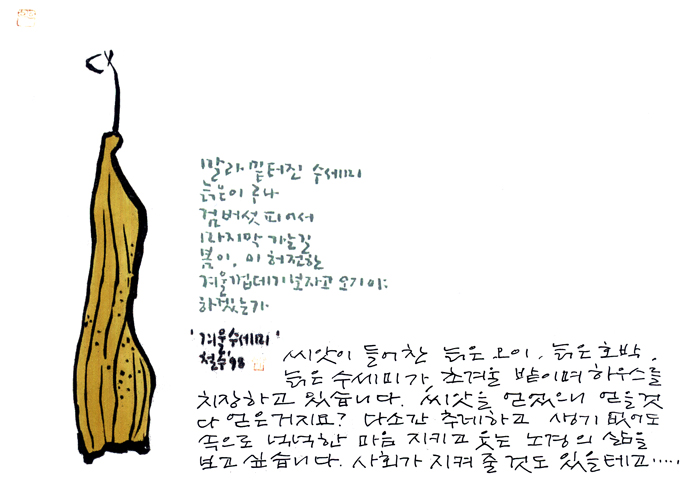 말라 밑터진 수세미
늙은이 루나
검버섯 피어서
마지막 가는길
봄이, 이 허전한
겨울껍데기 보자고 오기야
하겠는가
'겨울수세미'
철수'98
씨앗이 들어찬 늙은 오이, 늙은 호박,
늙은 수세미가 초겨울 밭이며 하우스를
치장하고 있습니다. 씨앗을 얻었으니 얻을것
다 얻은거지요? 다소간 추레하고 생기 없어도
속으로 넉넉한 마음 지키고 웃는 노경의 삶을
보고 싶습니다. 사회가 지켜 줄 것도 있을테고.....